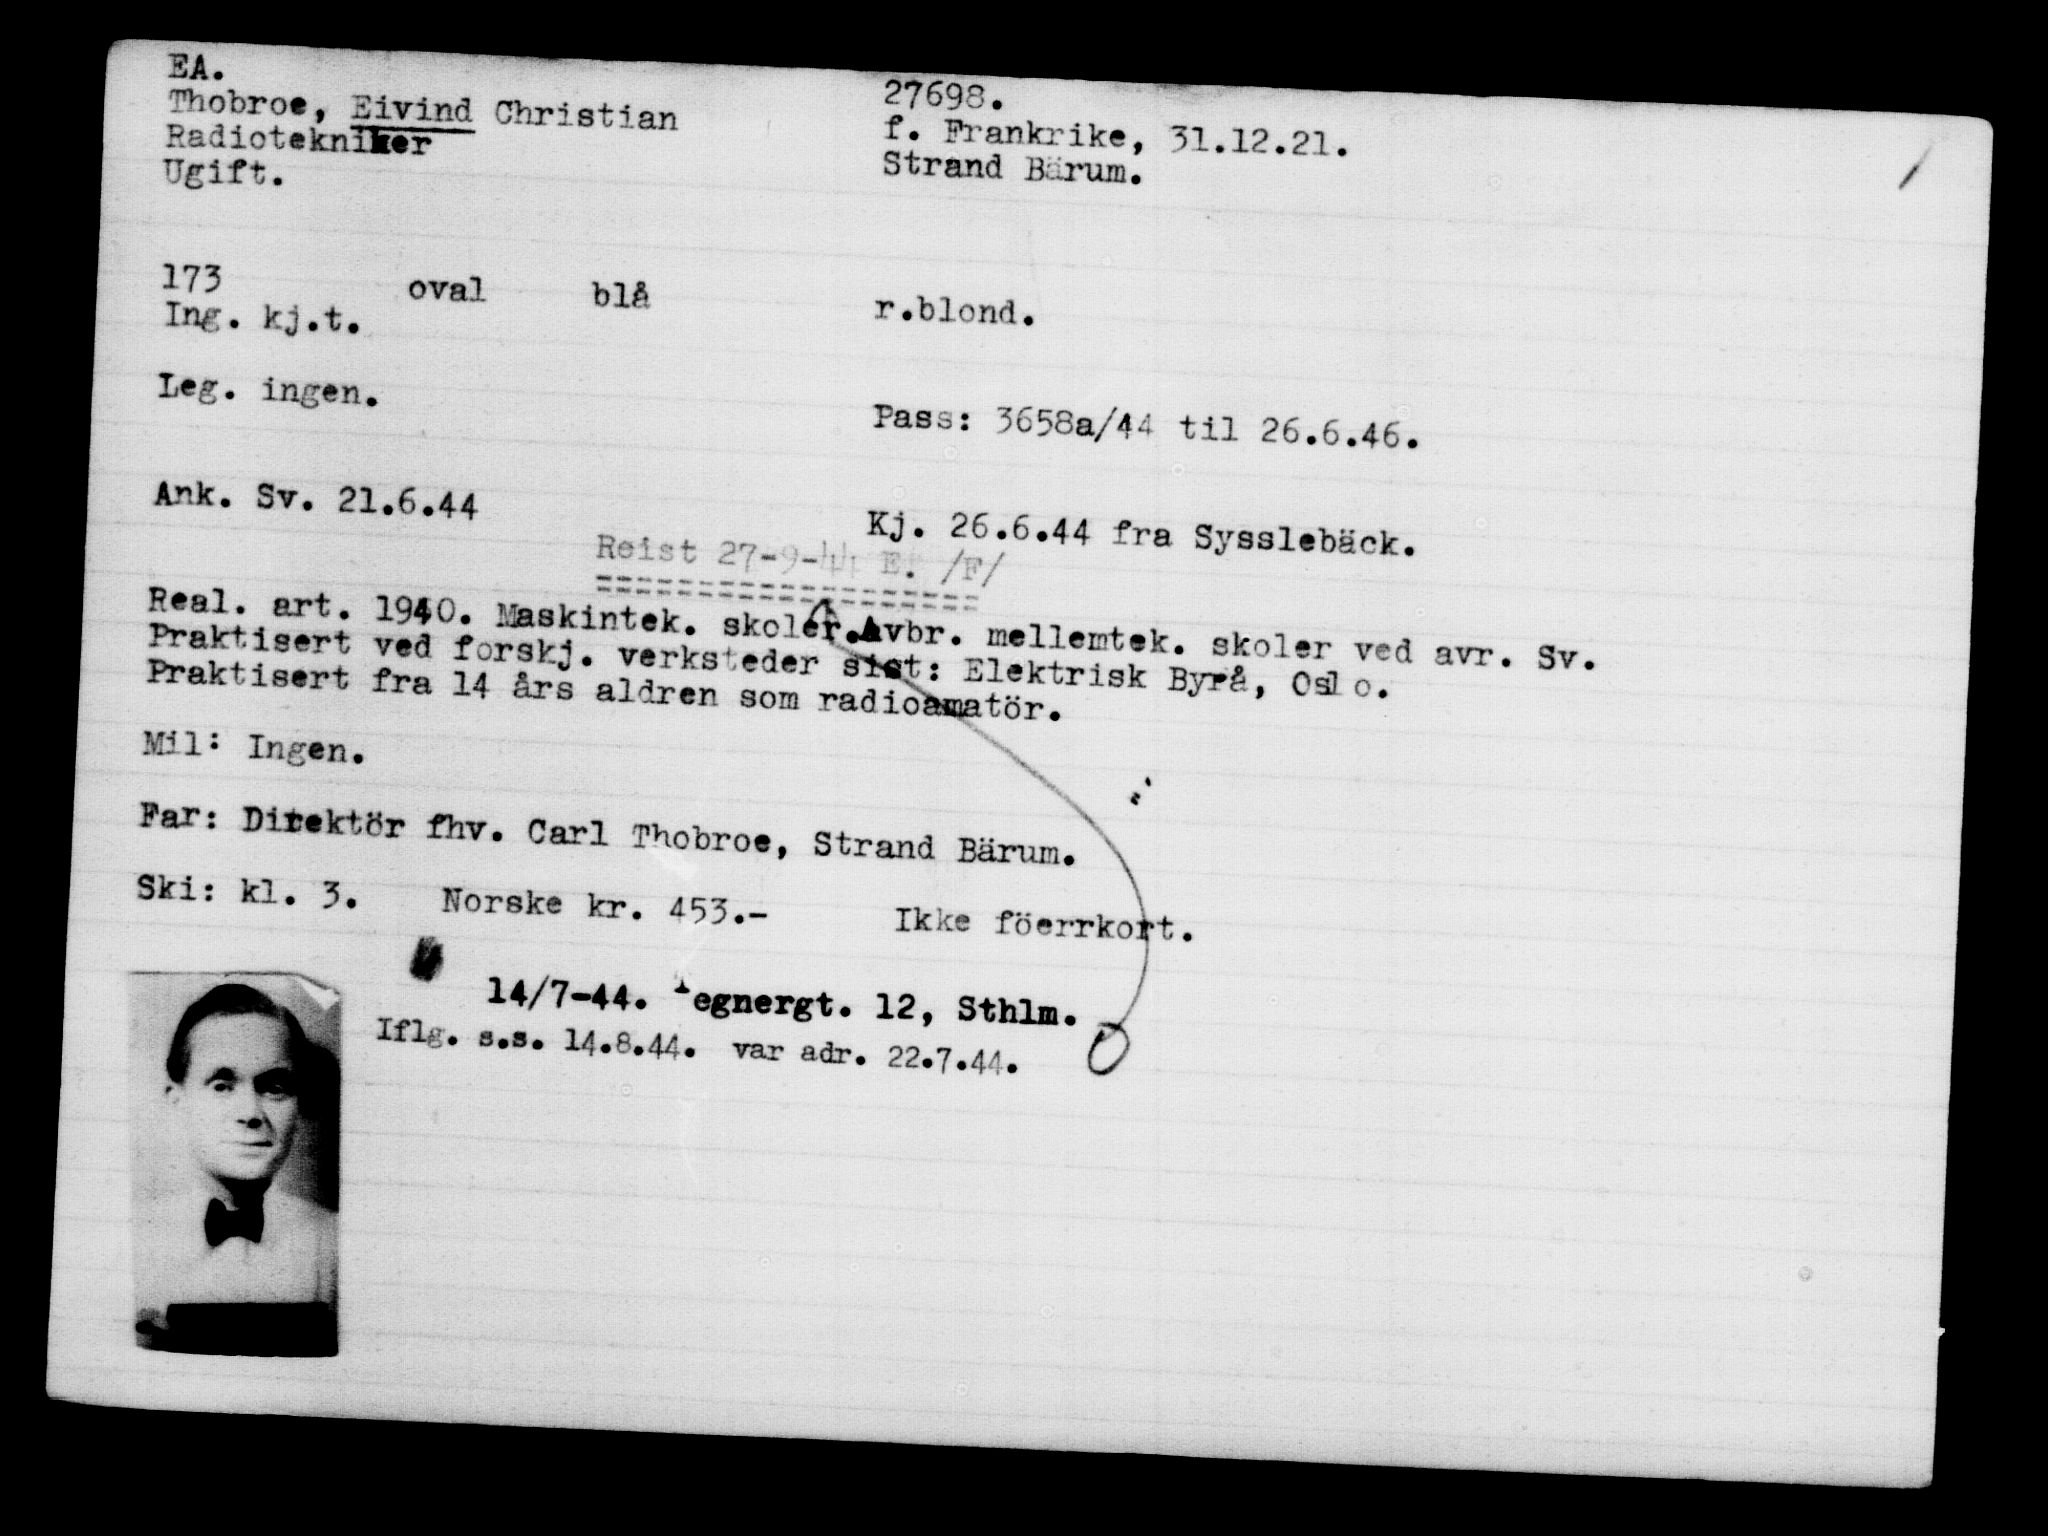 EA.
27698.
Thobroe, Eivind Christian
f. Frankrike, 31.12.21.
Radiotekniker
Strand Bärum.
Ugift.
173 oval blå r.blond.
Ing. kj.t.
Leg. ingen.
Pass: 3658a/44 til 26.6.46.
Ank. Sv. 21.6.44
Kj. 26.6.44 fra Sysslebäck.
Reist 27-9-44 E. /F/
Real. art. 1940. Maskintek. skoler.Avbr. mellemtek. skoler ved avr. Sv.
Praktisert ved forskj. verksteder sist: Elektrisk Byrå, Oslo.
Praktisert fra 14 års aldren som radioamatör.
Mil: Ingen.
Far: Direktör fhv. Carl Thobroe, Strand Bärum.
Ski: kl. 3. Norske kr. 453.- Ikke föerrkort.
14/7-44. Tegnergt. 12, Sthlm.
Iflg. s.s. 14.8.44. var adr. 22.7.44.